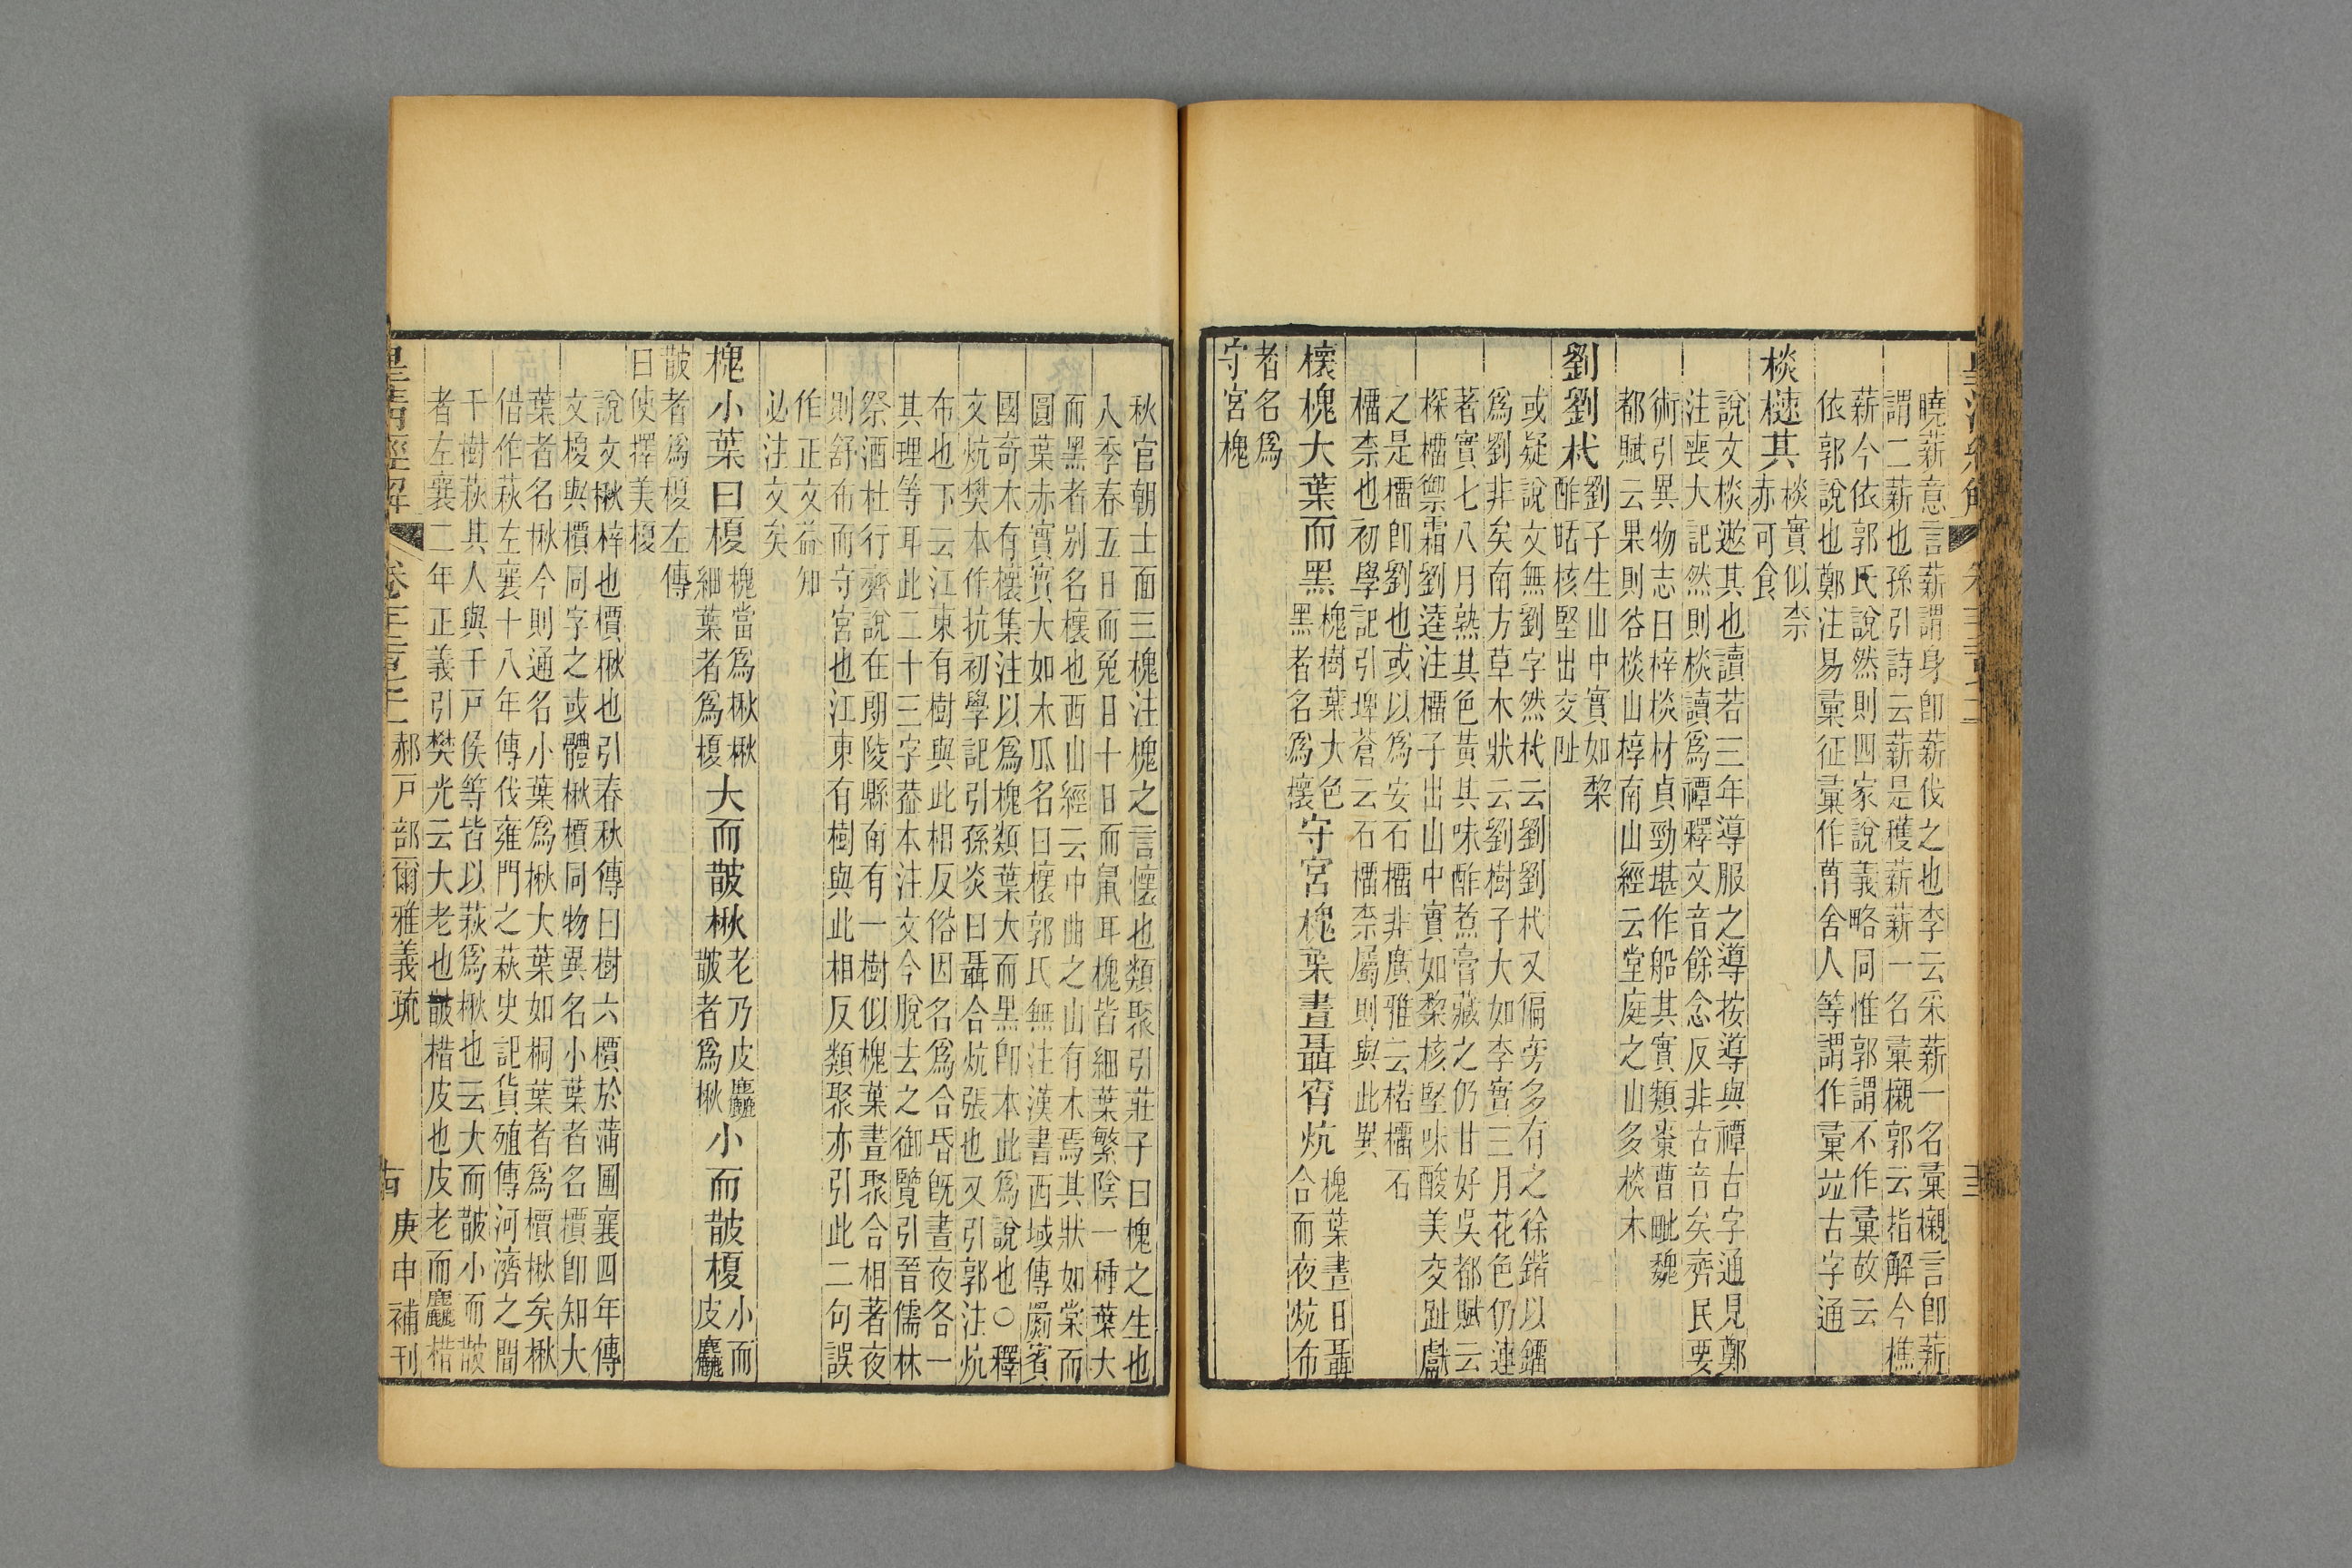 曉薪意言薪謂身卽薪伐之也李云采薪一名稾櫬言卽薪
謂二薪也孫引詩云薪是穫薪薪一名稾櫬郭云指解今樵
薪今依郭氏說然則四家說義略同惟郭謂不作稾故云
依郭說也鄭注易彙征彙作曹舍人等謂作彙竝古字通
棪㮛其
棪實似柰
赤可食
說文棪遬其也讀若三年導服之導按導與禫古字通見鄭
注喪大記然則棪讀爲禫釋文音餘念反非古音矣齊民要
術引異物志曰梓棪材貞勁堪作船其實類棗曹毗魏
都賦云果則谷棪山椁南山經云堂庭之山多棪木
劉劉杙
劉子生山中實如棃
酢䣧核堅出交阯
或疑說文無劉字然杙云劉劉杙又偏旁多有之徐鍇以鐂
爲劉非矣南方草木狀云劉樹子大如李實三月花色仍連
著實七八月熟其色黃其味酢煮膏藏之仍甘好吳都賦云
探榴禦霜劉逵注榴子出山中實如棃核堅味酸美交趾獻
之是橊卽劉也或以爲安石橊非廣雅云楉橊石
橊柰也初學記引埤蒼云石橊柰屬則與此異
櫰槐大葉而黑
槐樹葉大色
黑者名爲櫰
守宮槐葉晝聶宵炕
槐葉晝日聶
合而夜炕布
者名爲
守宮槐
秋官朝士面三槐注槐之言懷也類聚引莊子曰槐之生也
入季春五日而兔目十日而鼠耳槐皆細葉繁陰一種葉大
而黑者別名櫰也西山經云中曲之山有木焉其狀如棠而
圓葉赤實實大如木瓜名曰櫰郭氏無注漢書西域傳罽賓
國奇木有櫰集注以爲槐類葉大而黑卽本此爲說也○釋
文炕樊本作抗初學記引孫炎曰聶合炕張也又引郭注炕
布也下云江東有樹與此相反俗因名爲合昏旣晝夜各一
其理等耳此二十三字葢本注文今脫去之御覽引晉儒林
祭酒杜行齊說在朗陵縣南有一樹似槐葉晝聚合相著夜
則舒布而守宮也江東有樹與此相反類聚亦引此二句誤
作正文益知
必注文矣
槐小葉曰榎
槐當爲楸楸
細葉者爲榎
大而皵楸
老乃皮麤
皵者爲楸
小而皵榎
小而
皮麤
皵者爲榎左傳
曰使擇美榎
說文楸梓也檟楸也引春秋傳曰樹六檟於蒲圃襄四年傳
文榎與檟同字之或體楸檟同物異名小葉者名檟卽知大
葉者名楸今則通名小葉爲楸大葉如桐葉者爲檟楸矣楸
偕作萩左襄十八年傳伐雍門之萩史記貨殖傳河濟之間
千樹萩其人與千戸侯等皆以萩爲楸也云大而皵小而皵
者左襄二年正義引樊光云大老也皵楛皮也皮老而麤楛
皇淸經解
郝戸部爾雅義疏
庚申補刊